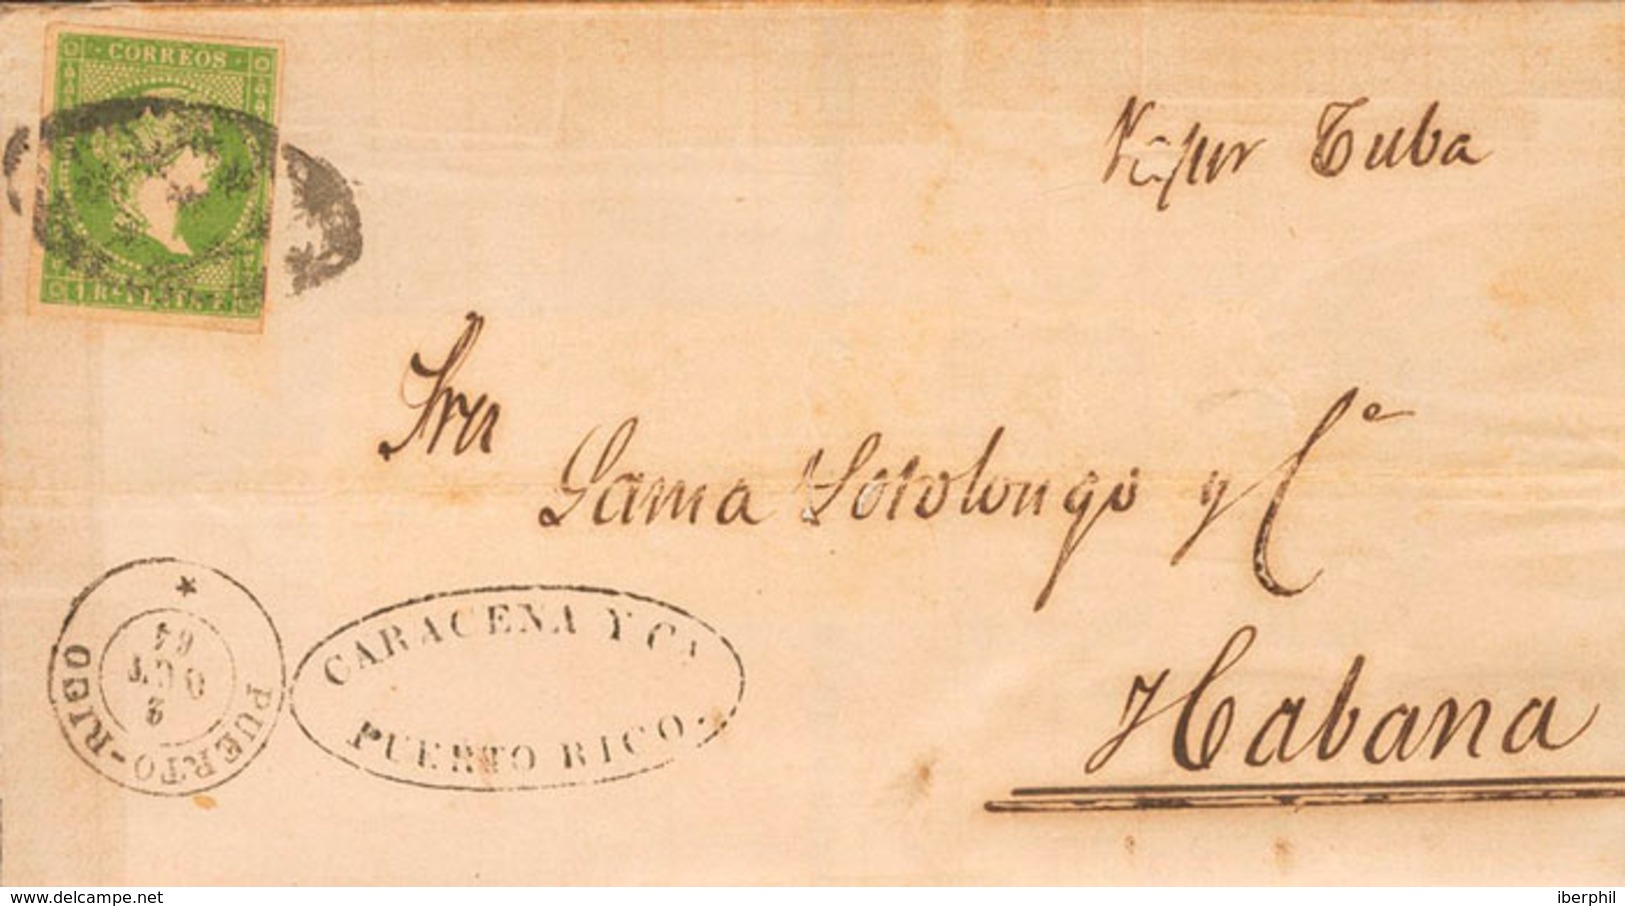 CORREOS
1 RL PLATA F.
Vapor Cuba
Sres
Lama Sotolongo y Ca
Habana
PUERTO-RICO
8
OCT
64
CARACENA Y CA
PUERTO RICO.
delcampe.net
iberphil